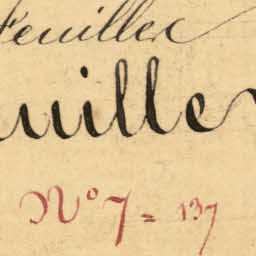 Feuillex
uille
Nº 7 = 137